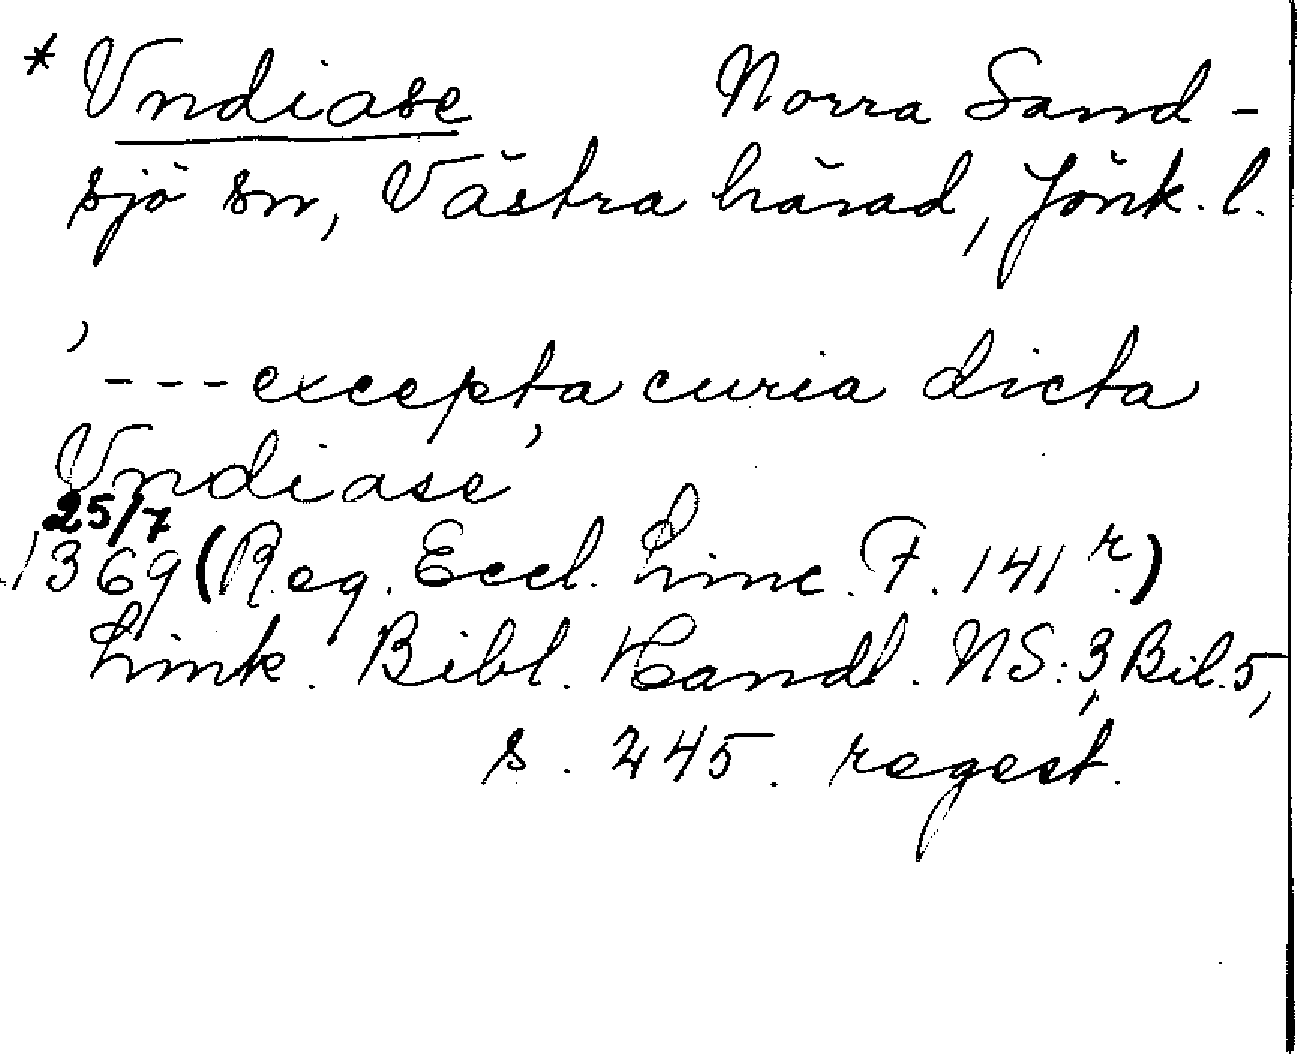 * Vndiase Norra Sand-
sjö sn, Västra härad, Jönk. l.
’---excepta curia dicta
Vndiase’
25/7
1369 (Reg. Eccl. Linc. F. 141 r.)
Link. Bibl. Handl. NS: 3, Bil. 5,
s. 245. regest.